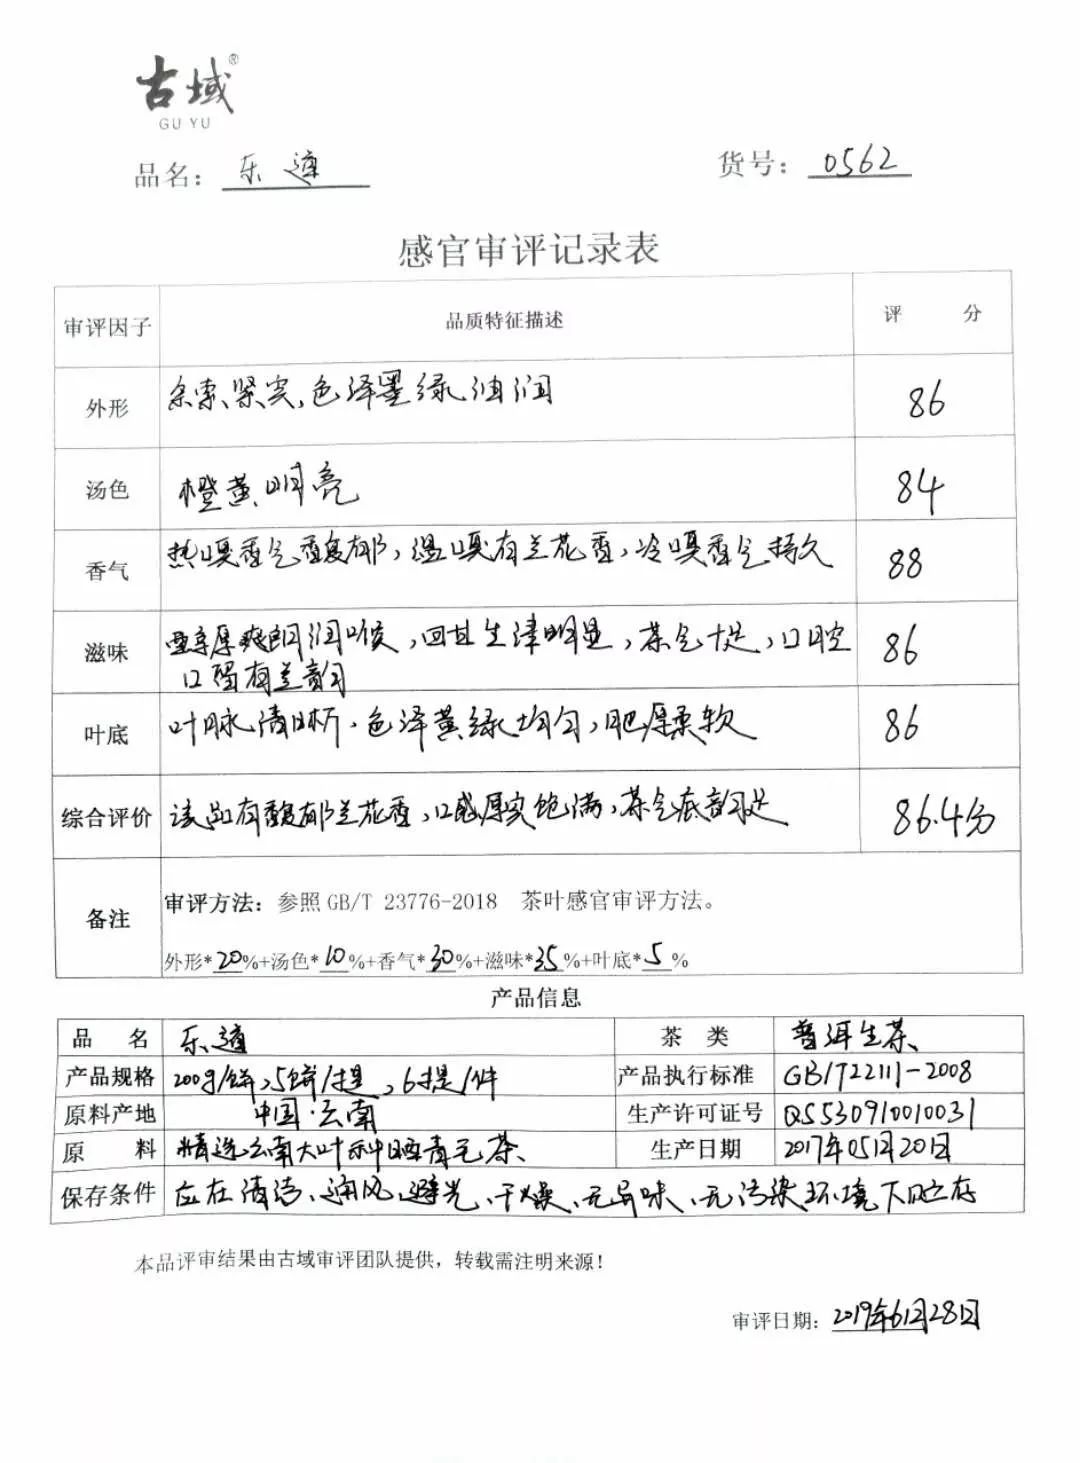 古域®
GU YU
品名： 乐道 货号： 0562
感官审评记录表
审评因子 品质特征描述 评 分
外形 条索紧实,色泽墨绿油润 86
汤色 橙黄明亮 84
香气 热嗅香气馥郁,温嗅有兰花香,冷嗅香气持久 88
滋味 醇厚爽朗润喉,回甘生津明显,茶气十足,口腔 86
口留有兰韵
叶底 叶脉清晰,色泽黄绿均匀,肥厚柔软 86
综合评价 该品有馥郁兰花香,口感厚实饱满,茶气底韵足 86.4分
备注 审评方法：参照 GB/T 23776-2018 茶叶感官审评方法。
外形*20%+汤色*10%+香气*30%+滋味*35%+叶底*5%
产品信息
品 名 乐道 茶 类 普洱生茶
产品规格 200g/饼,5饼/提,6提/件 产品执行标准 GB/T22111-2008
原料产地 中国·云南 生产许可证号 QS530910010031
原 料 精选云南大叶种晒青毛茶 生产日期 2017年05月20日
保存条件 应在清洁、通风、避光、干燥、无异味、无污染环境下贮存
本品评审结果由古域审评团队提供，转载需注明来源！
审评日期： 2019年6月28日